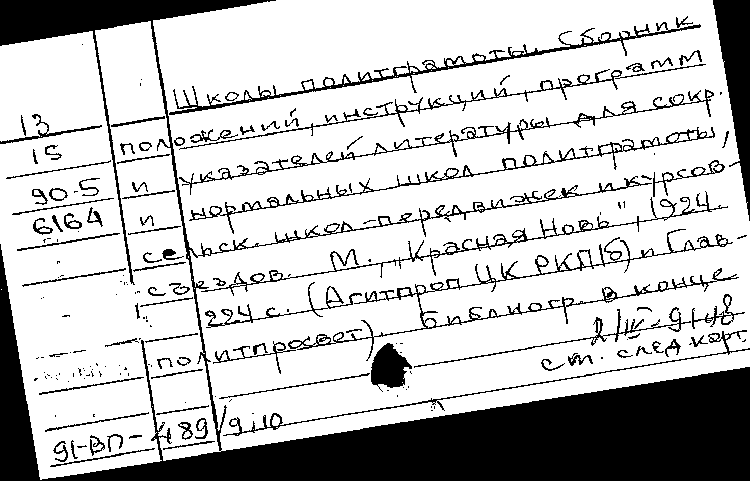 Школы политграмоты. Сборник
13
15 положений, инструкций, программ
90-5 и указателей литературы для сокр.
6164 и нормальных школ политграмоты,
сельск. школ-передвижек и курсов-
съездов. М., "Красная Новь", 1924.
224 с. (Агитпроп ЦК РКП(б) и Глав-
политпросвет). Библиогр. в конце
ст. след карт
91-ВП-489/9,10